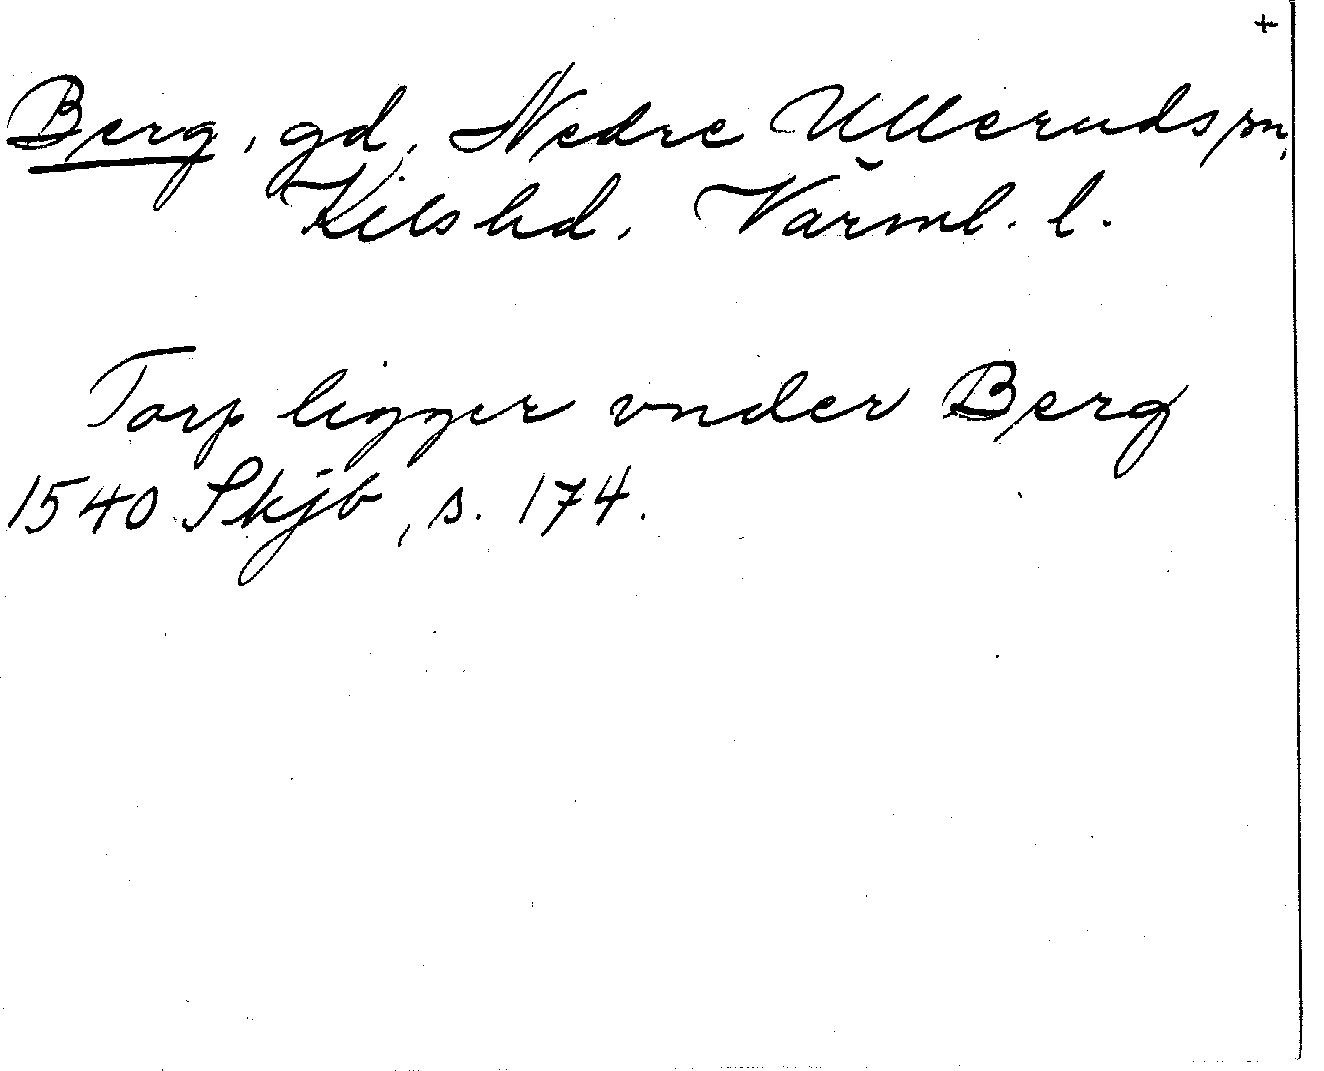 +
Berg, gd, Nedre Ulleruds sn,
Kils hd, Värml. l.
Torp ligger vnder Berg
1540 Skjb, s. 174.